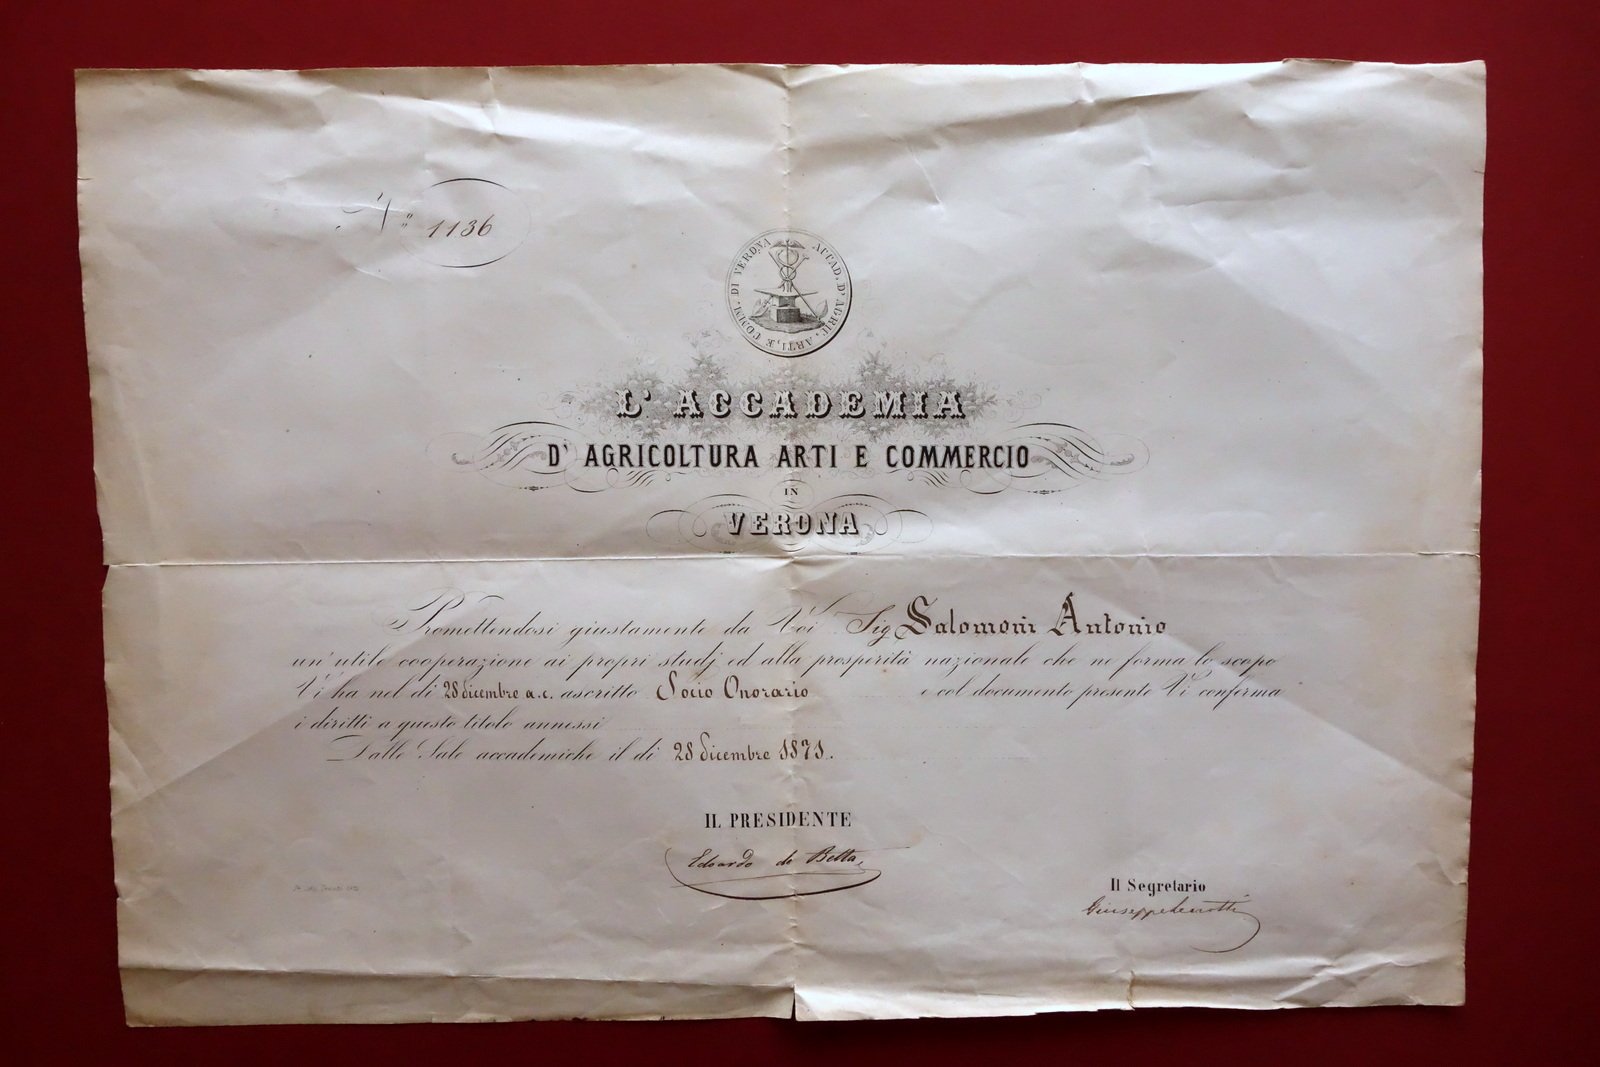 N.° 1136
ACCAD. D'AGRIC. ARTI, E COMM. DI VERONA
L'ACCADEMIA
D'AGRICOLTURA ARTI E COMMERCIO
IN
VERONA
Promettendosi giustamente da Voi Sig Salomoni Antonio
un'utile cooperazione ai propri studj ed alla prosperità nazionale che ne forma lo scopo
Vi ha nel dì 28 dicembre a.c. ascritto Socio Onorario e col documento presente Vi conferma
i diritti a questo titolo annessi
Dalle Sale accademiche il dì 28 dicembre 1871.
IL PRESIDENTE
Edoardo de Betta
Il Segretario
Giuseppe